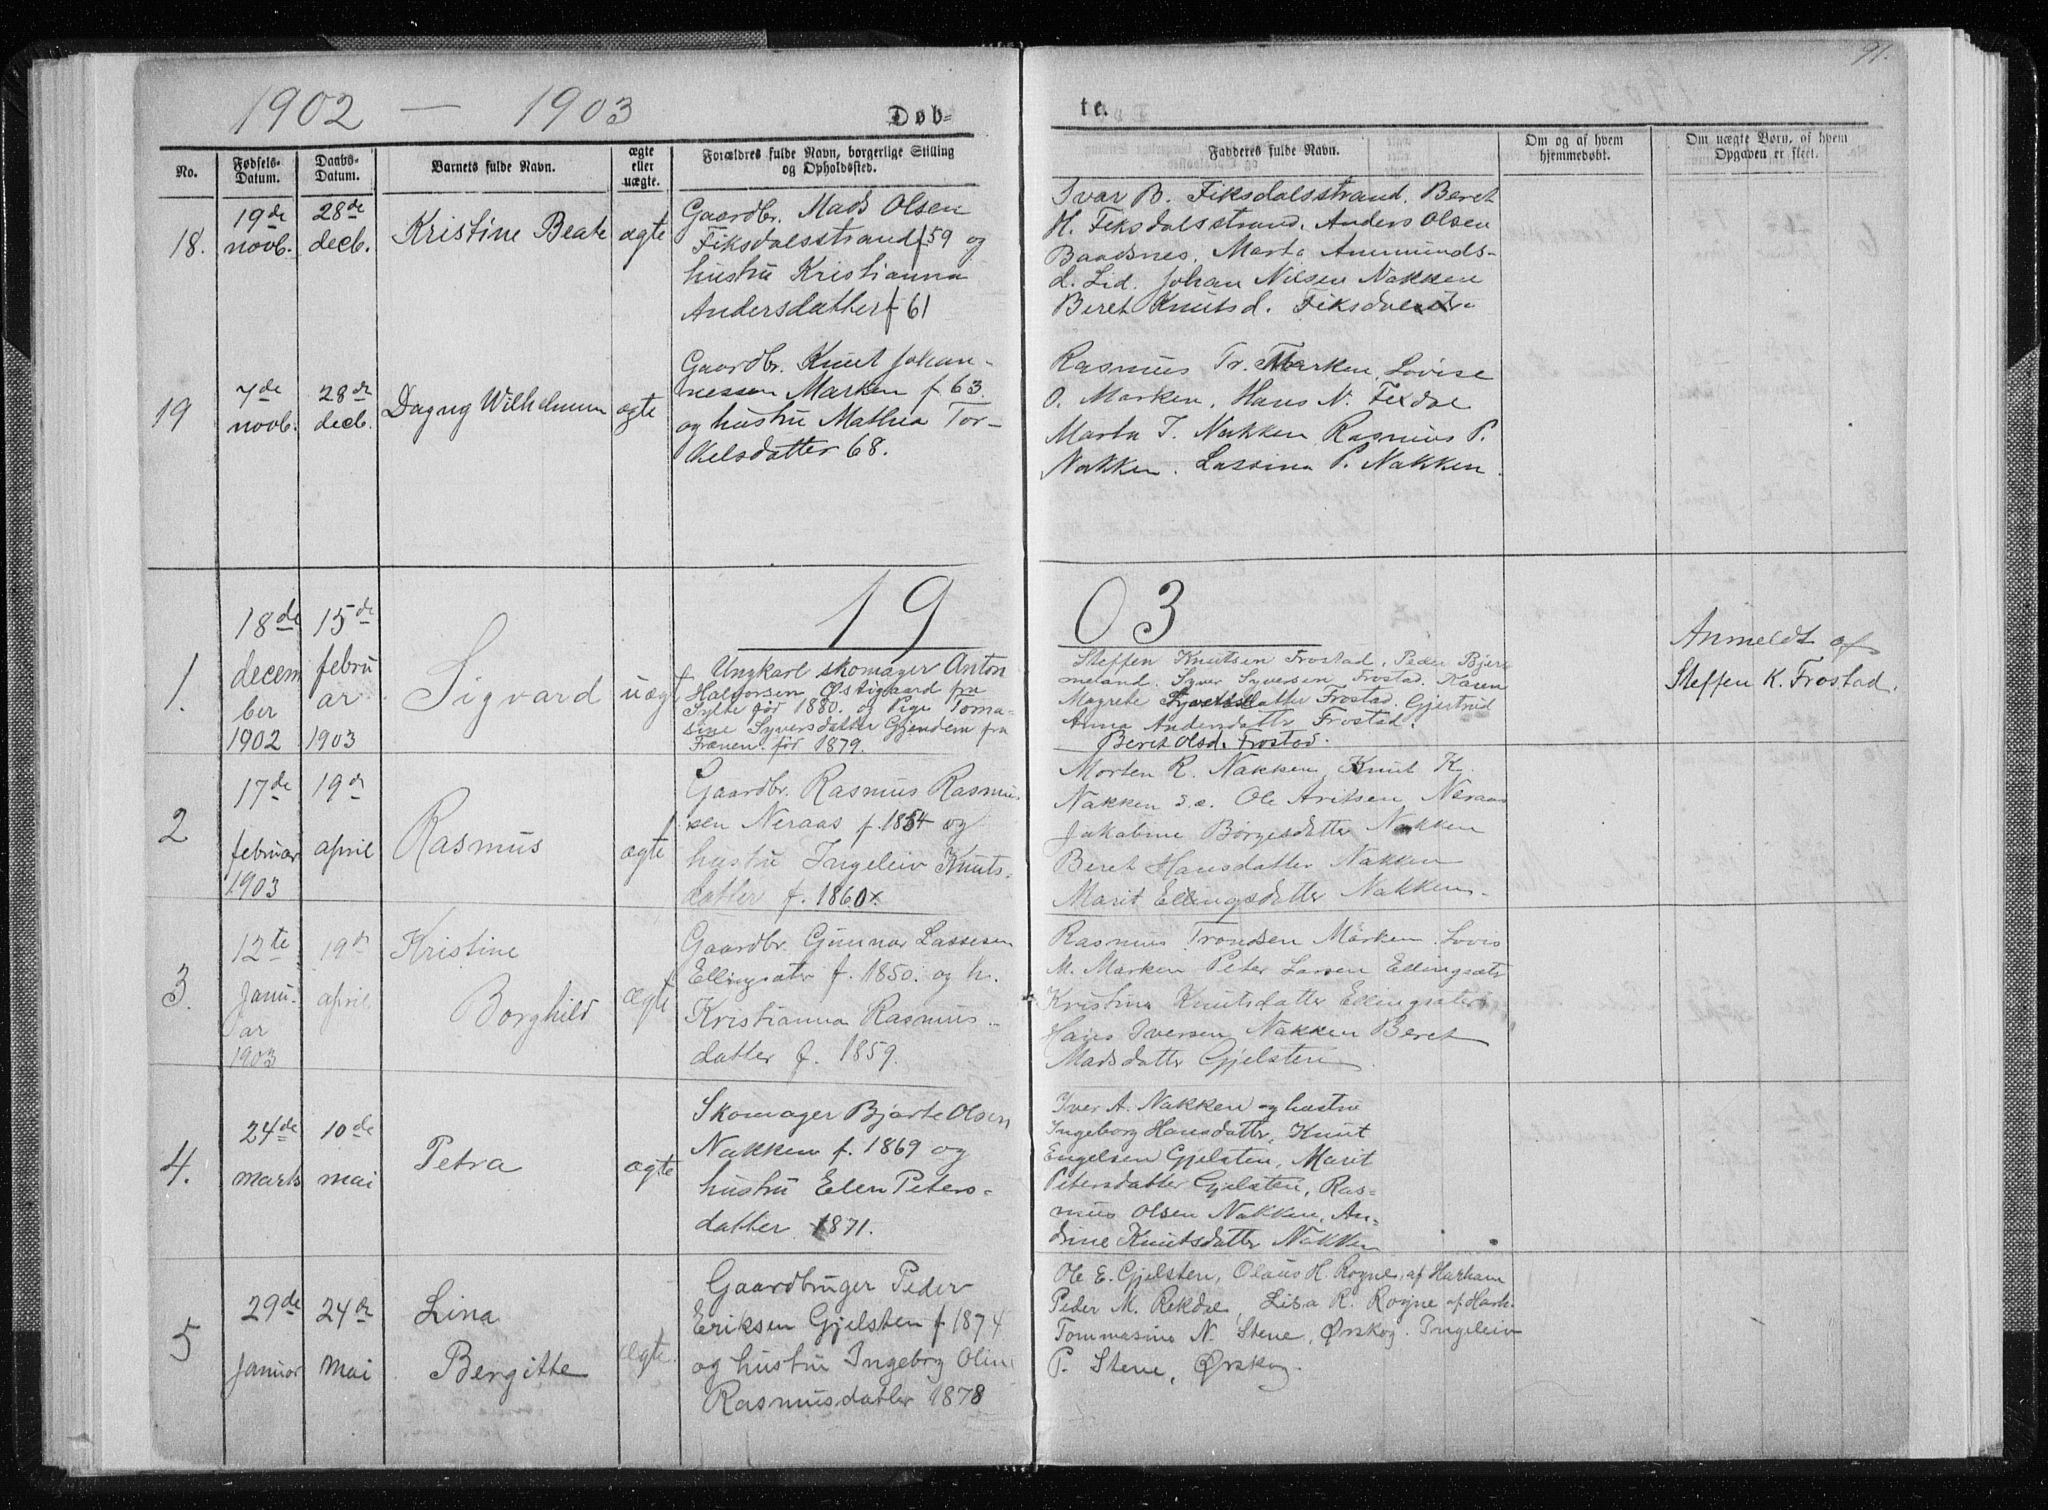 1902 — 1903
Døb=
te.
91.
No.
Fødsels-
Datum.
Daabs-
Datum.
Barnets fulde Navn.
ægte
eller
uægte.
Forældres fulde Navn, borgerlige Stilling
og Opholdssted.
Faddernes fulde Navn.
Om og af hvem
hjemmedøbt.
Om uægte Børn, af hvem
Opgaven er skeet.
18.
19de
novb.
28de
decb.
Kristine Beate
ægte
Gaardbr. Mads Olsen
Fiksdalsstrand f 59 og
hustru Kristianna
Andersdatter f 61
Ivar B. Fiksdalsstrand. Beret
H. Fiksdalsstrand. Anders Olsen
Baadsnes. Marta Ammunds-
d. Lid. Johan Nilsen Nakken
Beret Knutsd.
19
7de
novb.
28de
decb.
Dagny Wilhelmine
ægte
Gaardbr. Knut Johan-
nessen Marken f 63
og hustru Mathea Tor-
kelsdatter 68.
Rasmus Tr. Marken, Lovise
O. Marken. Hans N. Fixdal
Marta I. Nakken Rasmus P.
Nakken. Lassina P. Nakken.
19
03
1.
18de
decem
ber
1902
15de
febru
ar
1903
Sigvard
uægt
Ungkarl skomager Anton
Halvorsen Østigaard fra
Sylte før 1880. og Pige Toma-
sine Syversdatter Gjendem fra
Frænen. før 1879.
Steffen Knutsen Frostad, Peder Bjerme
meland. Syver Syversen Frostad. Karen
Magrete Syversdatter Frostad. Gjertrud
Anna Andersdatter Frostad.
Beret Olsd. Frostad.
Anmeldt af
Steffen K. Frostad.
2
17de
februar
1903
19de
april
Rasmus
ægte
Gaardbr. Rasmus Rasmus
sen Neraas f. 1854 og
hustru Ingeleiv Knuts-
datter f. 1860.
Morten R. Nakken, Knut K.
Nakken s.s. Ole Ariksen Neraas
Jakabine Børgesdatter Nakken
Beret Hansdatter Nakken
Marit Ellingsdatter Nakken.
3.
12te
Janu-
ar
1903
19de
april
Kristine
Borghild
ægte
Gaardbr. Gunnar Lassesen
Ellingsæter f. 1850. og h.
Kristianna Rasmus-
datter f. 1859.
Rasmus Trondsen Marken. Lovis
M. Marken Peter Larsen Ellingsæter
Kristina Knutsdatter Ellingsæter
Hans Iversen Nakken Beret
Madsdatter Gjelsten
4.
24de
marts
10de
mai
Petra
ægte
Skomager Bjarte Olsen
Nakken f. 1869 og
hustru Elen Peters-
datter 1871.
Iver A. Nakken og hustru
Ingeborg Hansdatter, Knut
Engelsen Gjelsten, Marit
Petersdatter Gjelsten, Ras-
mus Olsen Nakken, An-
drine Knutsdatter Nakken
5
29de
Januar
24de
mai
Lina
Bergitte
ægte
Gaardbruger Peder
Eriksen Gjelsten f 1874
og hustru Ingeborg Oline
Rasmusdatter 1878
Ole E. Gjelsten, Olaus H. Rogne, af Harham
Peder M. Rekdal, Lisa R. Rogne af Harh.
Tommasine N. Stene, Ørskog. Ingeleiv
P. Stene, Ørskog.